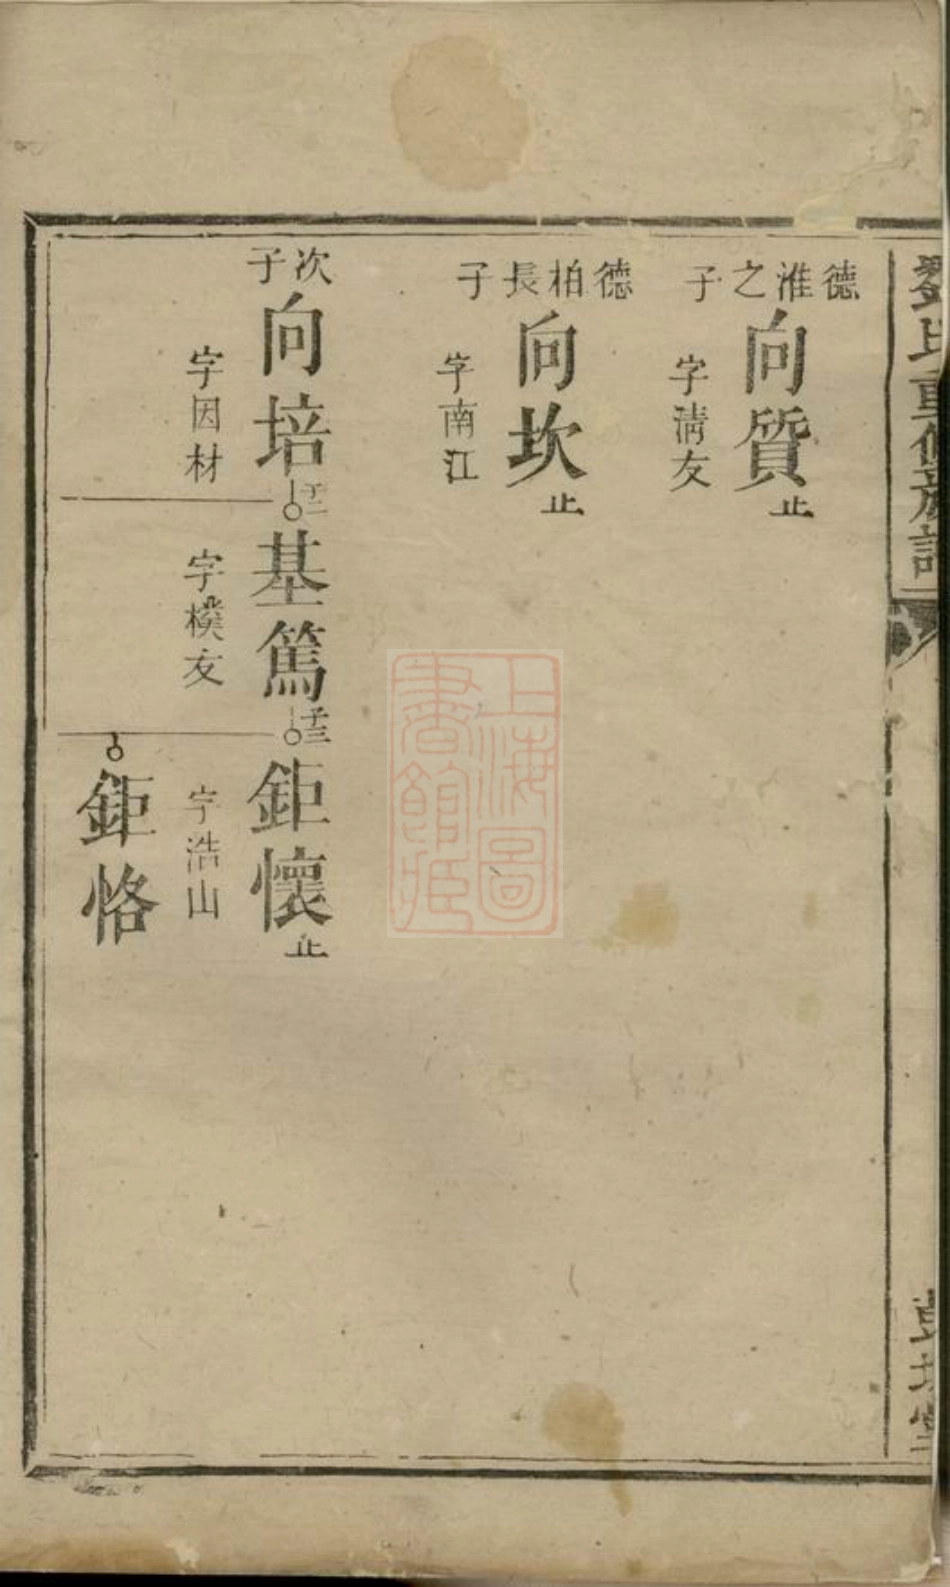 德淮之子
向質止
字淸友
德柏長子
向坎止
字南江
次子
向培子二
字因材
基篤子三
字樸友
鉅懷止
字浩山
鉅恪
氏重修族譜
上海圖書館藏